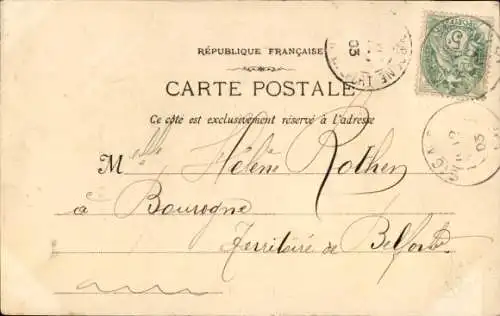 RÉPUBLIQUE FRANÇAISE
CARTE POSTALE
Ce côté est exclusivement réservé à l'adresse
Melle Hélène Rothen
à Bourogne
Territoire de Belfort
03
5